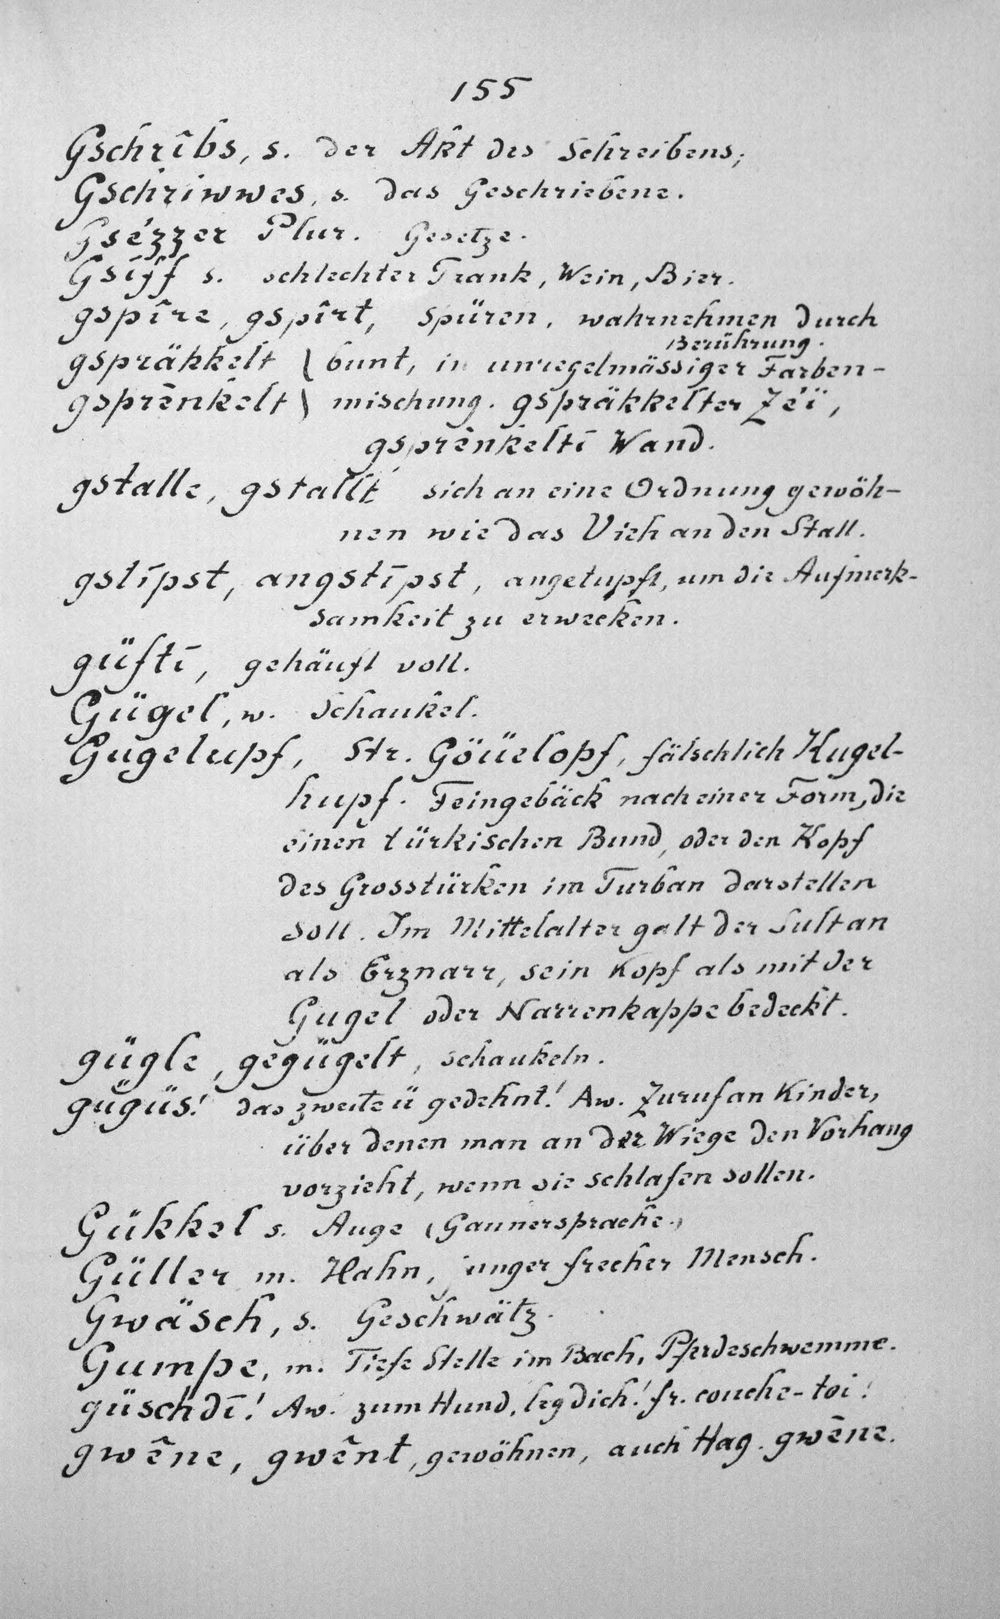 155
Gschrîbs, s. der Akt des Schreibens;
Gschriwwes, s. das Geschriebene.
Gsézzer Plur. Gesetze.
Gsiff s. schlechter Trank, Wein, Bier.
gspîre, gspîrt, spüren, wahrnehmen durch
Berührung.
gspräkkelt ( bunt, in unregelmässiger Farben-
gsprênkelt ) mischung. gspräkkelter Zéï,
gsprênkeltī Wand.
gstalle, gstallt sich an eine Ordnung gewöh-
nen wie das Vieh an den Stall.
gstīpst, angstīpst, angetupft, um die Aufmerk-
samkeit zu erwecken.
güftī, gehäuft voll.
Gügel, w. Schaukel.
Gugelupf, Str. Göüelopf, fälschlich Kugel-
hupf. Feingebäck nach einer Form, die
einen türkischen Bund, oder den Kopf
des Grosstürken im Turban darstellen
soll. Im Mittelalter galt der Sultan
als Erznarr, sein Kopf als mit der
Gugel oder Narrenkappe bedeckt.
gügle, gegügelt, schaukeln.
gügüs! das zweite ü gedehnt! Aw. Zuruf an Kinder,
über denen man an der Wiege den Vorhang
vorzieht, wenn sie schlafen sollen.
Gükkel s. Auge (Gaunersprache.)
Güller m. Hahn, junger frecher Mensch.
Gwäsch, s. Geschwätz.
Gumpe, m. Tiefe Stelle im Bach, Pferdeschwemme.
güschdī! Aw. zum Hund, leg dich! fr. couche-toi!
gwêne, gwênt, gewöhnen, auch Hag. gwēne.